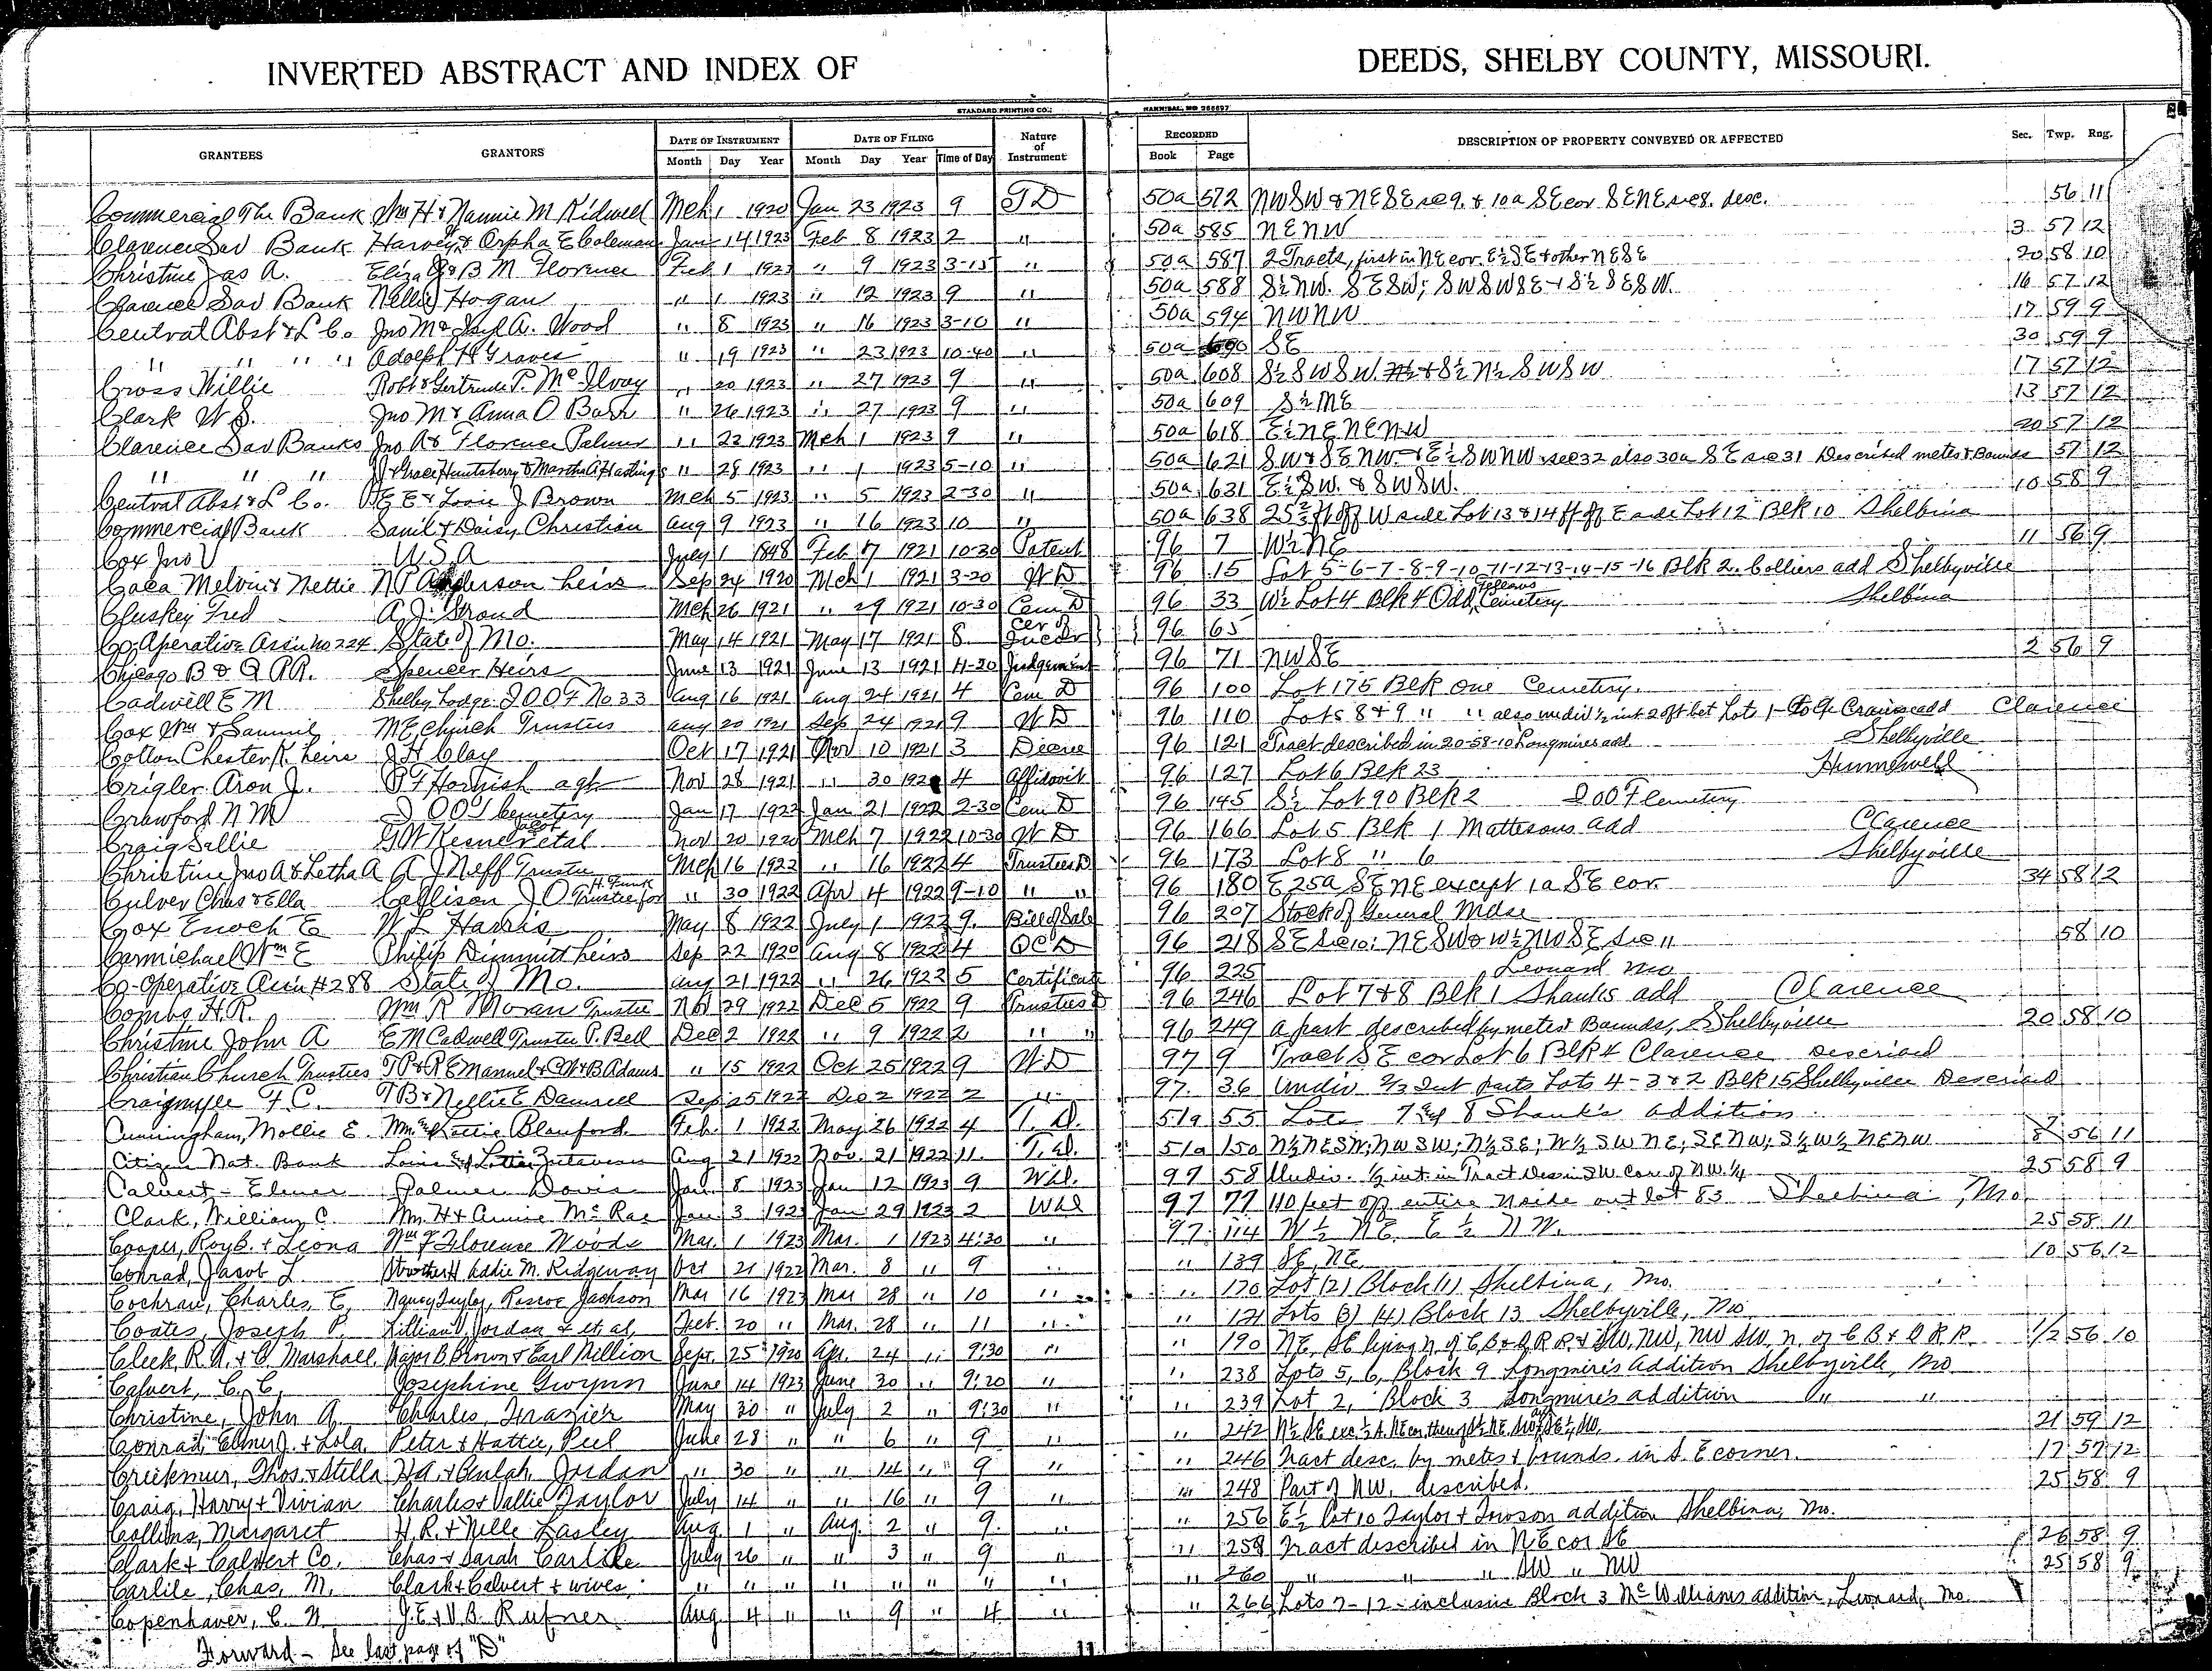 INVERTED ABSTRACT AND INDEX OF DEEDS, SHELBY COUNTY, MISSOURI.
STANDARD PRINTING CO., HANNIBAL, MO
GRANTEES GRANTORS DATE OF INSTRUMENT DATE OF FILING Nature of Instrument RECORDED DESCRIPTION OF PROPERTY CONVEYED OR AFFECTED Sec. Twp. Rng.
Month Day Year Month Day Year Time of Day Book Page
Commercial The Bank Wm H & Nannie M Kidwell Mch 1 1920 Jan 23 1923 9 TD 50a 572 NWSW & NESE sec 9. & 10a SE cor SENE sec 8. desc. 56 11
Clarence Sav Bank Harvey & Orpha E Coleman Jan 14 1923 Feb 8 1923 2 " 50a 585 NENW 3 57 12
Christine Jas A. Eliza J & B M Florence Feb 1 1923 " 9 1923 3-15 " 50a 587 2 Tracts, first in NE cor E½SE & other NESE 20 58 10
Clarence Sav Bank Nellie Hogan " 1 1923 " 12 1923 9 " 50a 588 S½NW. SESW; SWSWSE & S½SESW. 16 57 12
Central Abst & L Co. Jno M & A. Wood " 8 1923 " 16 1923 3-10 " 50a 594 NWNW 17 59 9
" " " " Adolph H Graves " 19 1923 " 23 1923 10-40 " 50a SE 30 59 9
Cross Willie Robt & Gertrude P. McIlvoy " 20 1923 " 27 1923 9 " 50a 608 S½SWSW & S½N½SWSW 17 57 12
Clark W S. Jno M & Anna O Barr " 26 1923 " 27 1923 9 " 50a 609 S½NE 13 57 12
Clarence Sav Banks Jno A & Florence Palmer " 22 1923 Mch 1 1923 9 " 50a 618 E½NENENW 20 57 12
" " " J & Grace Huntsberry & Martha A Hastings " 28 1923 " 1 1923 5-10 " 50a 621 SW & SENW & E½SWNW sec 32 also 30a SE sec 31 Described metes & Bounds 57 12
Central Abst & L Co. E E & Lovie J Brown Mch 5 1923 " 5 1923 2-30 " 50a 631 E½SW. & SWSW. 10 58 9
Commercial Bank Saml & Daisy Christian Aug 9 1923 " 16 1923 10 " 50a 638 25⅔ ft off W side Lot 13 & 14 ft off E side Lot 12 Blk 10 Shelbina
Cox Jno V U.S.A July 1 1848 Feb 7 1921 10-30 Patent 96 7 W½NE 11 56 9
Melvin & Nettie N P Anderson heirs Sep 24 1920 Mch 1 1921 3-20 WD 96 15 Lot 5-6-7-8-9-10-11-12-13-14-15-16 Blk 2. Colliers add Shelbyville
Cluskey Fred A. J. Stroud Mch 26 1921 " 29 1921 10-30 Cem D 96 33 W½ Lot 4 Blk 4 Odd Fellows Cemetery Shelbina
Co-Operative Assn No 224 State of Mo. May 14 1921 May 17 1921 8 Cer of 96 65
Chicago B & Q RR. Spencer Heirs June 13 1921 June 13 1921 11-20 Judgement 96 71 NWSE 2 56 9
Cadwell E M Shelby Lodge I O O F No 33 Aug 16 1921 Aug 24 1921 4 Cem D 96 100 Lot 175 Blk One Cemetery.
Cox Wm & Sammie M E Church Trustees Aug 20 1921 Sep 24 1921 9 WD 96 110 Lots 8 & 9 " " also undiv ½ int 20ft bet Lots Crains add Clarence
Cotton Chester K. heirs J H Clay Oct 17 1921 Nov 10 1921 3 Decree 96 121 Tract described in 20-58-10 Longmires add Shelbyville
Crigler Aron J. P T Hornish agt Nov 28 1921 " 30 192 4 Affidavit 96 127 Lot 6 Blk 23 Hunnewell
Crawford N M I O O F Cemetery Jan 17 1922 Jan 21 1922 2-30 Cem D 96 145 S½ Lot 90 Blk 2 I O O F Cemetery
Craig Sallie G W et al Nov 20 1920 Mch 7 1922 10-30 WD 96 166 Lot 5 Blk 1 Mattesons add Clarence
Christine Jno A & Letha A A J Neff Trustee Mch 16 1922 " 16 1922 4 Trustees D 96 173 Lot 8 " 6 Shelbyville
Culver Chas & Ella Callison J O Trustee for H. Funk " 30 1922 Apr 4 1922 9-10 " " 96 180 E 25a SENE except 1a SE cor. 34 58 12
Cox Enoch E W L Harris May 8 1922 July 1 1922 9. Bill of Sale 96 207 Stock of General Mdse
Carmichael Wm E Philip Dimmitt heirs Sep 22 1920 Aug 8 1922 4 QCD 96 218 SE sec 10; NESW & W½NWSE sec 11 58 10
Co-Operative Assn #288 State of Mo. Aug 21 1922 " 26 1922 5 Certificate 96 225 Leonard Mo
Combs H. R. Wm R Moran Trustee Nov 29 1922 Dec 5 1922 9 Trustees D 96 246 Lot 7 & 8 Blk 1 Shanks add Clarence
Christine John A E M Cadwell Trustee P. Bell Dec 2 1922 " 9 1922 2 " " 96 249 a part described by metes & Bounds, Shelbyville 20 58 10
Christian Church Trustees T P & R E Manuel & C W & B Adams " 15 1922 Oct 25 1922 9 WD 97 9 Tract SE cor Lot 6 Blk 4 Clarence Described
Craigmyle F. C. T B & Nellie E Damrell Sep 25 1922 Dec 2 1922 2 " 97 36 Undiv ⅔ Int parts Lots 4-3 & 2 Blk 15 Shelbyville Described
Cunningham, Mollie E. Wm & Kattie Blanford Feb. 1 1922 May 26 1922 4 T. D. 51a 55 Lots 7 & 8 Shank's addition.
Citizen Nat. Bank Louis & Lottie Zutavern Aug 21 1922 Nov. 21 1922 11. T. D. 51a 150 N½NESW; NWSW; N½SE; N½SWNE; SENW; S½W½NENW 8 56 11
Calvert - Elmer Palmer Davis Jan. 8 1923 Jan 12 1923 9 W.d. 97 58 Undiv. ½ int. in Tract Des in SW Cor of NW ¼ 25 58 9
Clark, William C Wm H & Annie McRae Jan 3 1923 Jan 29 1923 2 Wd 97 77 110 feet off entire N side out lot 83 Shelbina, Mo.
Cooper, Roy B. & Leona Wm F Florence Woods Mar. 1 1923 Mar. 1 1923 4:30 " 97 114 W ½ NE, E ½ NW. 25 58 11
Conrad, Jacob L. Strother & Addie M. Ridgeway Oct 21 1922 Mar. 8 " 9 " " 139 SE, NE, 10 56 12
Cochran, Charles, E, Nancy Taylor, Roscoe Jackson Mar 16 1923 Mar 28 " 10 " " 170 Lot (2) Block (1) Shelbina, Mo.
Coates, Joseph P. Lillian V. Jordan & et al, Oct. 20 " Mar. 28 " 11 " " 171 Lots (3) (4) Block 13 Shelbyville, Mo
Cleek, R. A. & C. Marshall Major B Brown & Earl Million Sept. 25 1920 Apr. 24 " 9:30 " " 190 NE, SE lying N. of C B & Q R R & SW, NW, NW SW, N. of C B & Q R R. 1/2 56 10
Calvert, C. C. Josephine Gwynn June 14 1923 June 30 " 9:20 " " 238 Lots 5, 6, Block 9 Longmire's Addition Shelbyville, Mo
Christine, John A. Charles, Frazier May 30 " July 2 " 9:30 " " 239 Lot 2, Block 3 Longmire's addition " "
Conrad, Elmer J. & Lola Peter & Hattie, Peel June 28 " " 6 " 9 " " 242 N½ SE exc 21 59 12
Creekmur, Thos. & Stella H.A. & Beulah Jordan " 30 " " 14 " 9 " " 246 Tract desc. by metes & bounds. in S. E corner. 17 57 12
Craig, Harry & Vivian Charles & Vallie Taylor July 14 " " 16 " 9 " " 248 Part of NW, described. 25 58 9
Collins, Margaret H. R. & Nelle Lasley Aug. 1 " Aug. 2 " 9. " " 256 E½ Lot 10 Taylor & Towson addition Shelbina, Mo.
Clark & Calvert Co. Chas & Sarah Carlile July 26 " " 3 " 9 " " 259 Tract described in NE cor SE 26 58 9
Carlile, Chas, M. Clark & Calvert & wives, " " " " " " " " " 260 " " " SW " NW 25 58 9
Copenhaver, C. N. J. E & V. B. Rufner Aug 4 " " 9 " 4 " " 266 Lots 7-12-inclusive Block 3 McWilliams addition, Leonard, Mo.
Forward - See last page of "D"
11